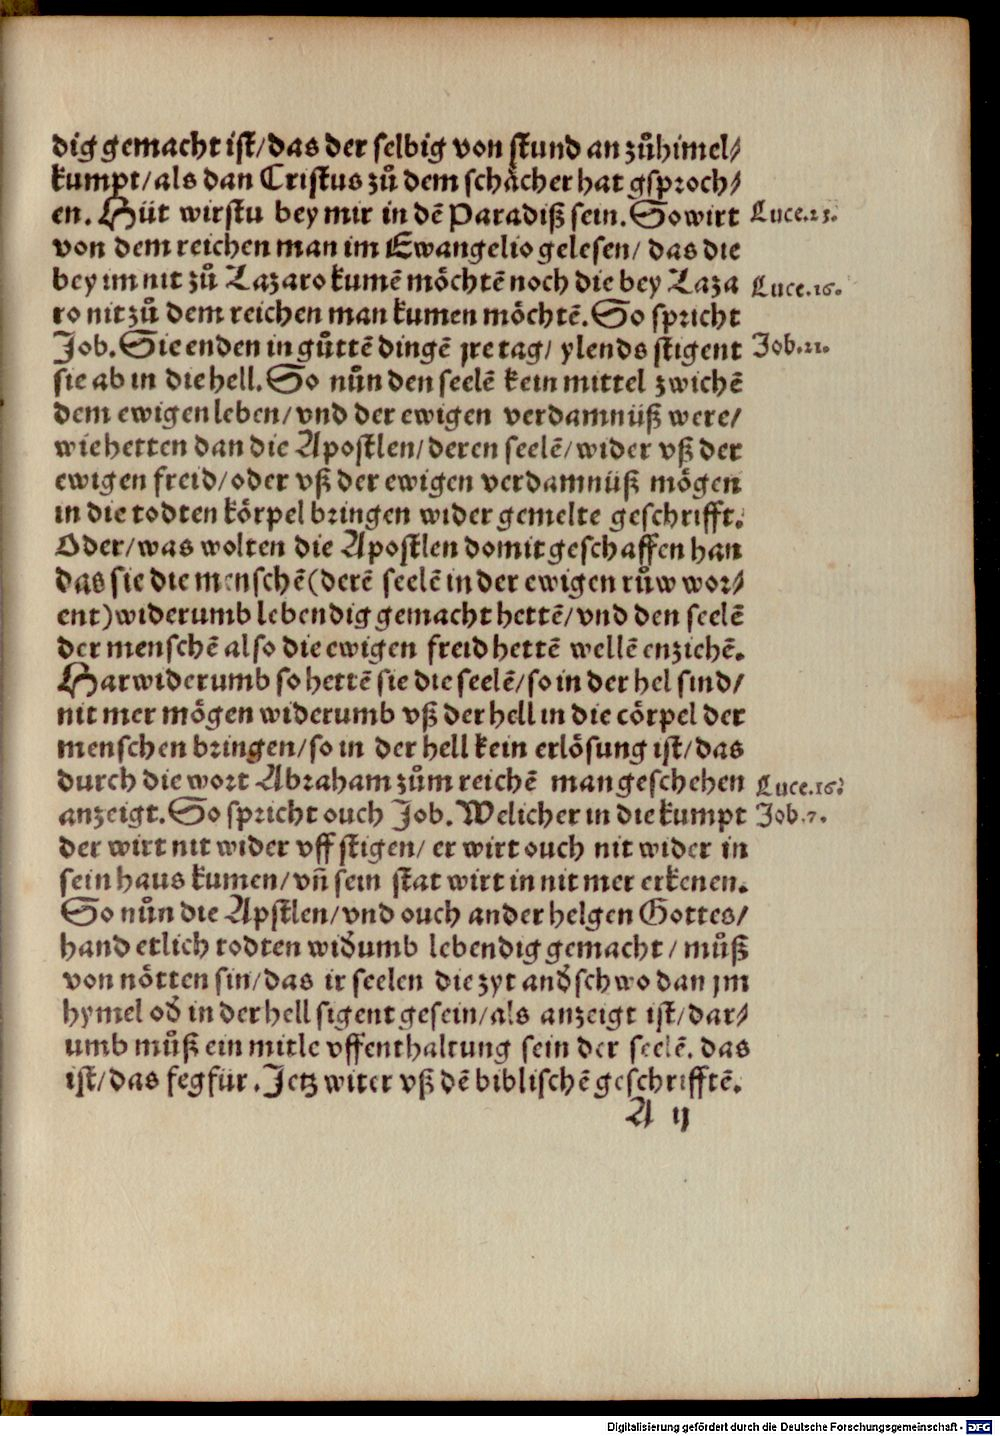 dig gemacht ist/das der selbig von stund an zůhimel/
kumpt/als dan Cristus zů dem schächer hat gsproch/
en. Hüt wirstu bey mir in dē Paradiß sein. So wirt Luce.23.
von dem reichen man im Ewangelio gelesen/ das die
bey im nit zů Lazaro kumē möchtē noch die bey Laza Luce.16.
ro nit zů dem reichen man kumen möchtē. So spricht
Job. Sie enden in gůttē dingē jre tag/ ylends stigent Job.21.
sie ab in die hell. So nůn den seelē kein mittel zwichē
dem ewigen leben/vnd der ewigen verdamnüß were/
wie hetten dan die Apostlen/deren seelē/wider vß der
ewigen freid/oder vß der ewigen verdamnüß mögen
in die todten körpel bringen wider gemelte geschrifft.
Oder/was wolten die Apostlen domit geschaffen han
das sie die menschē(derē seelē in der ewigen růw wor/
ent)widerumb lebendig gemacht hettē/vnd den seelē
der menschē also die ewigen freid hettē wellē enziehē.
Harwiderumb so hettē sie die seelē/so in der hel sind/
nit mer mögen widerumb vß der hell in die cörpel der
menschen bringen/so in der hell kein erlösung ist/das
durch die wort Abraham zům reichē man geschehen Luce.16.
anzeigt. So spricht ouch Job. Welicher in die kumpt Job.7.
der wirt nit wider vff stigen/ er wirt ouch nit wider in
sein haus kumen/vn̄ sein stat wirt in nit mer erkenen.
So nůn die Apstlen/vnd ouch ander helgen Gottes/
hand etlich todten wid̕umb lebendig gemacht/ můß
von nötten sin/das ir seelen die zyt and̕schwo dan jm
hymel od̕ in der hell sigent gesein/als anzeigt ist/dar/
umb můß ein mitle vffenthaltung sein der seelē. das
ist/das fegfür. Jetz witer vß dē biblischē geschrifftē.
A ij
Digitalisierung gefördert durch die Deutsche Forschungsgemeinschaft - DFG